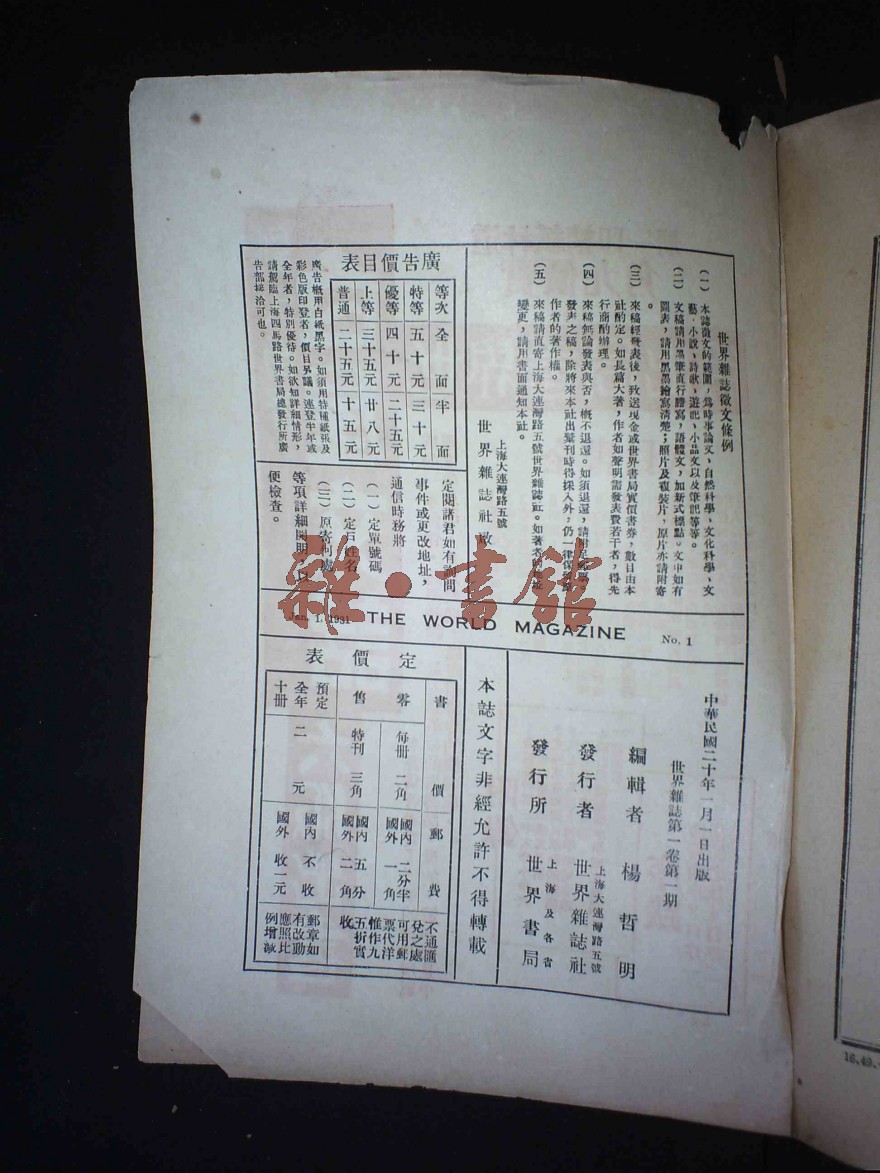 世界雜誌徵文條例
(一) 本誌徵文的範圍，為時事論文、自然科學、文化科學、文
藝、小說，詩歌、遊記、小品文以及筆記等等。
(二) 文稿請用墨筆直行謄寫，語體文，加新式標點。文中如有
圖表，請用黑墨繪寫清楚；照片及複裝片，原片亦請附寄
。
(三) 來稿經發表後，致送現金或世界書局實價書券，數目由本
社酌定。如長篇大著，作者如聲明需發表費若干者，得先
行商酌辦理。
(四) 來稿無論發表與否，概不退還。如須退還，請附足郵票
發表之稿，除將來本社出彙刊時得採入外，仍一律保
作者的著作權。
(五) 來稿請直寄上海大連灣路五號世界雜誌社。如著者
變更，請用書面通知本社。
上海大連灣路五號
世界雜誌社啟
廣告價目表
等次 全面 半面
特等 五十元 三十元
優等 四十元 二十五元
上等 三十五元 廿八元
普通 二十五元 十五元
廣告概用白紙黑字。如須用特種紙張及
彩色版印登者，價目另議。連登半年或
全年者，特別優待。如欲知詳細情形，
請駕臨上海四馬路世界書局總發行所廣
告部接洽可也。
定閱諸君如有詢問
事件或更改地址，
通信時務將
(一) 定單號碼
(二) 定戶姓名
(三) 原寄何處
等項詳細開明，以
便檢查。
雜·書館
Jan. 1, 1931 THE WORLD MAGAZINE No. 1
中華民國二十年一月一日出版
世界雜誌第一卷第一期
編輯者 楊哲明
上海大連灣路五號
發行者 世界雜誌社
上海及各省
發行所 世界書局
本誌文字非經允許不得轉載
定價表
書價 郵費
零售
每冊 二角 國內 二分半 國外 一角
特刊 三角 國內 五分 國外 二角
預定全年十冊 二元 國內 不收 國外 收一元
不通匯
兌之處
可用郵
票代洋
惟作九
五折實
收
郵章如
有改動
應照比
例增減
16,49,